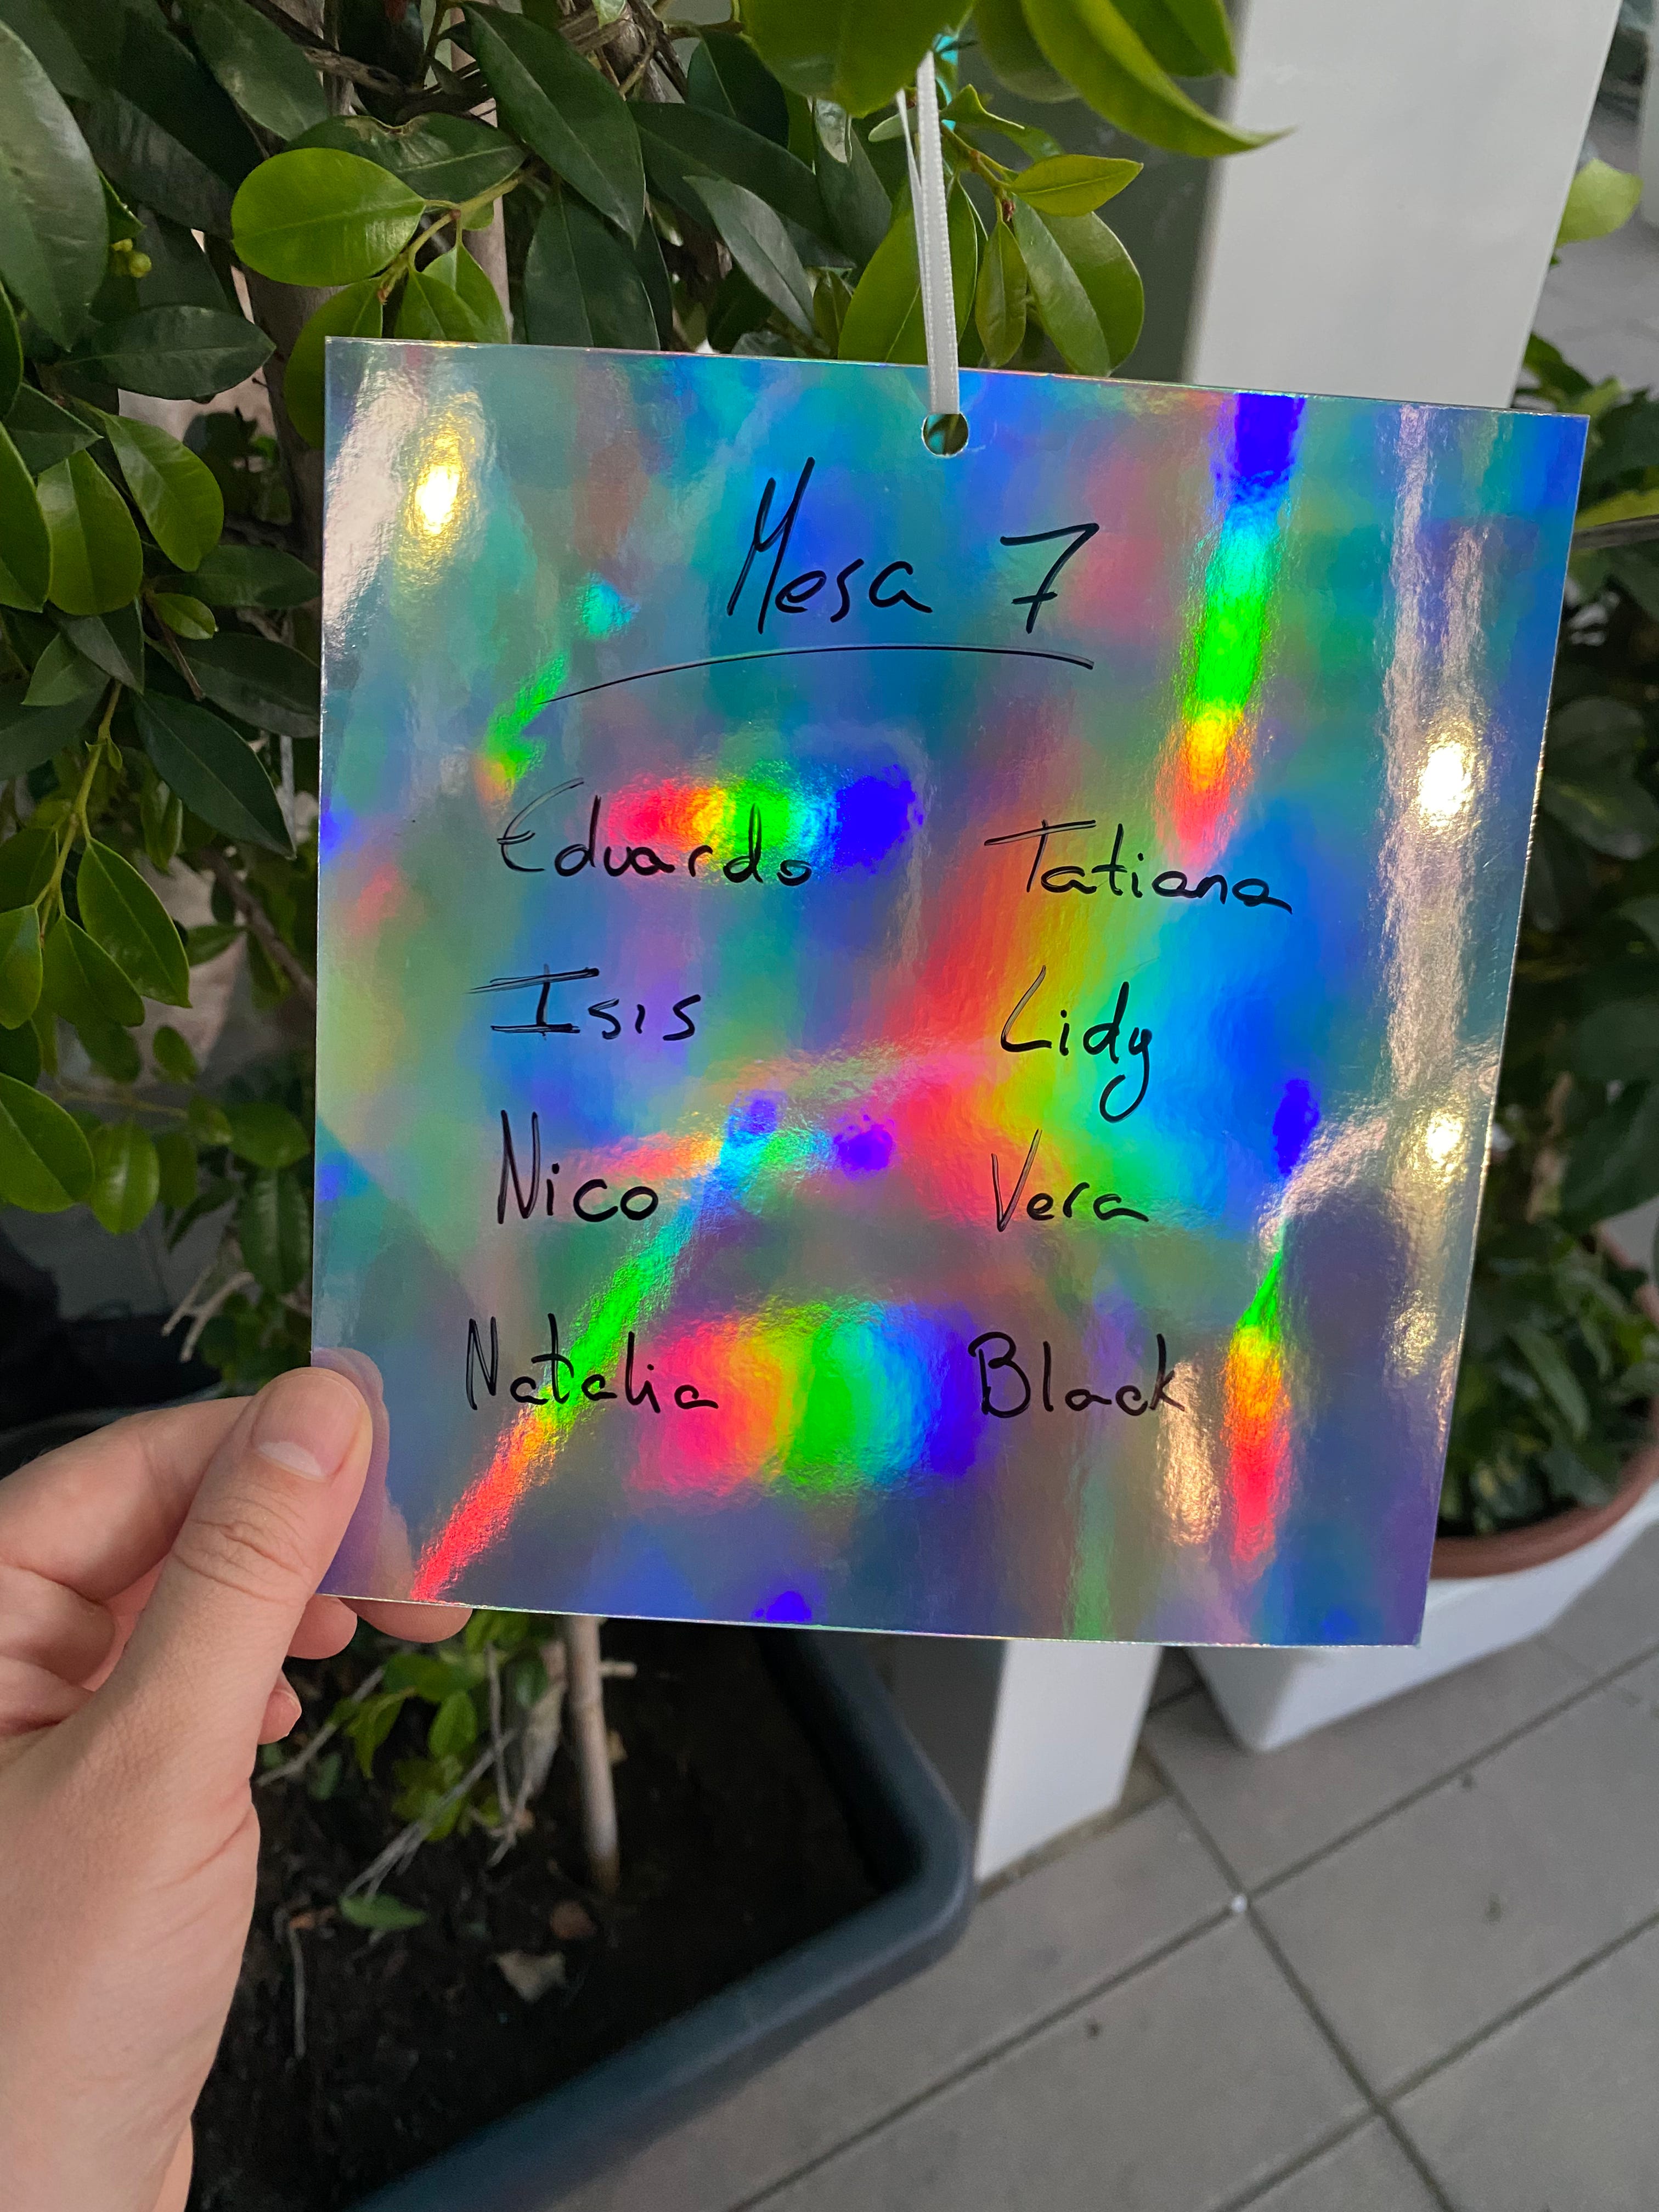 Mesa 7
Eduardo Tatiana
Isis Lidy
Nico Vera
Natalia Black